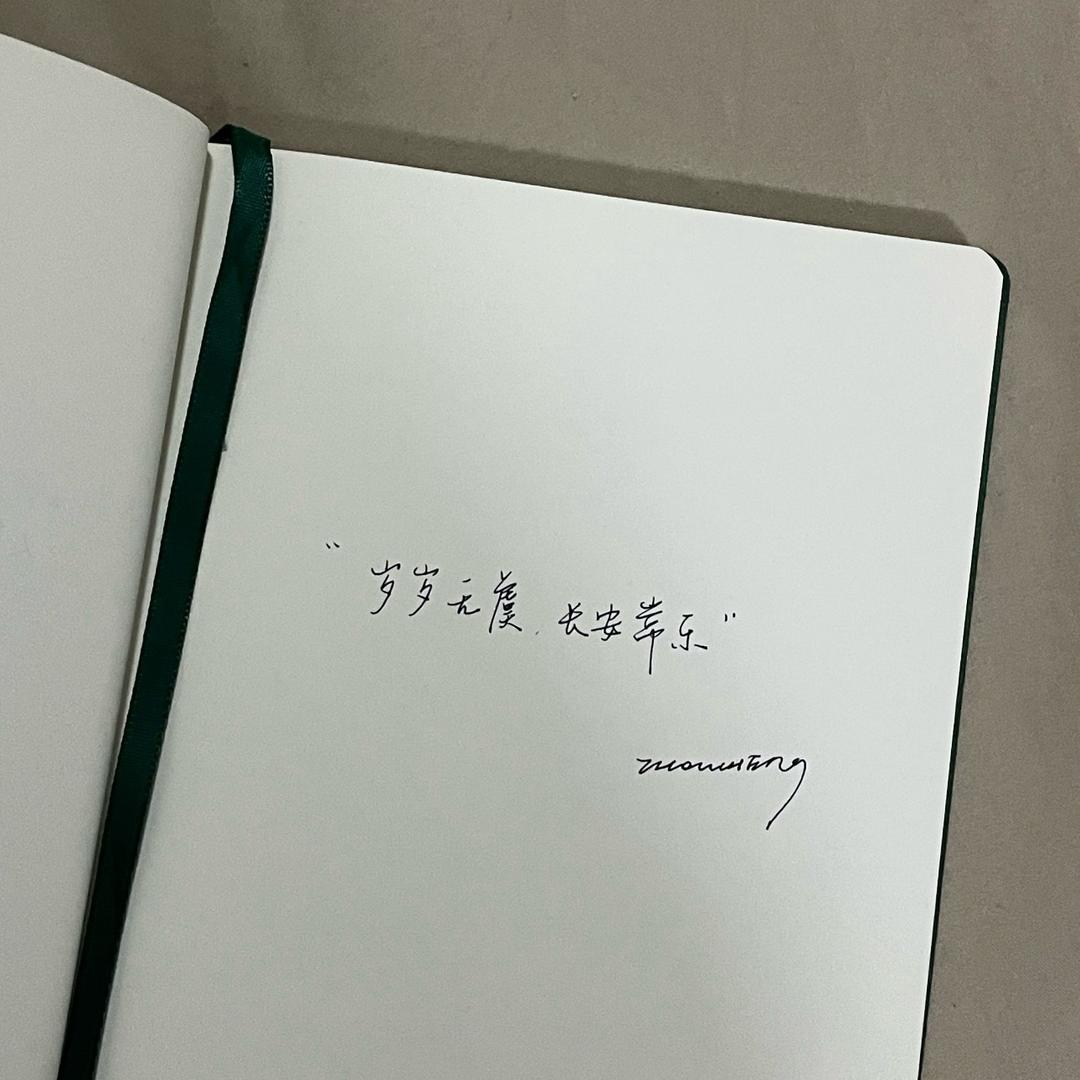 “岁岁无虞，长安常乐”